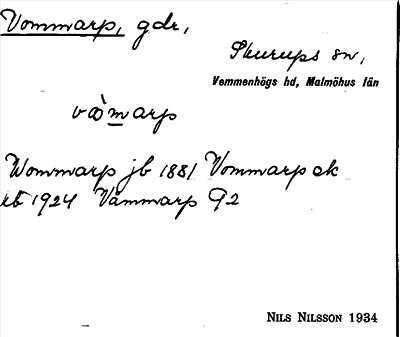 Vommarp, gdr,
Skurups sn,
Vemmenhögs hd, Malmöhus län
Wommarp jb 1881 Vommarp ek
rb 1924 Vammarp G2
NILS NILSSON 1934